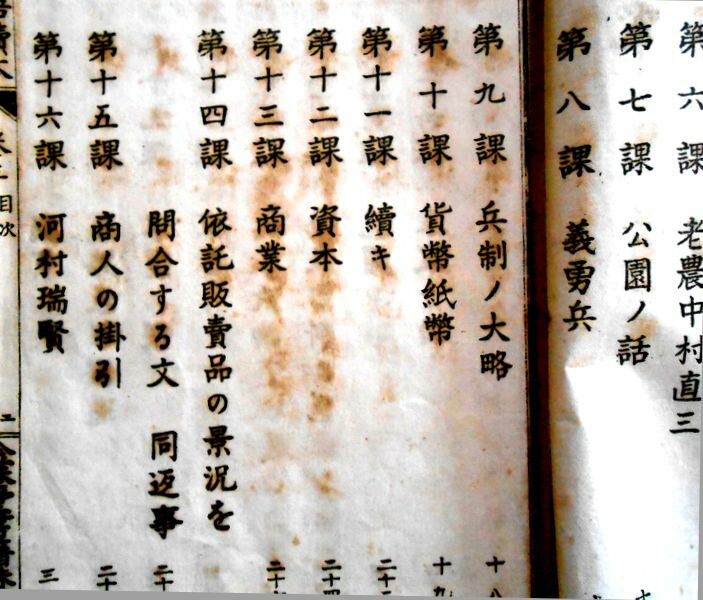 第六課 老農中村直三
第七課 公園ノ話
第八課 義勇兵
第九課 兵制ノ大略 十八
第十課 貨幣紙幣 十九
第十一課 續キ 二十
第十二課 資本 二十四
第十三課 商業 二十
第十四課 依託販賣品の景況を
問合する文 同返事 二十
第十五課 商人の掛引 二十
第十六課 河村瑞賢 三
目次